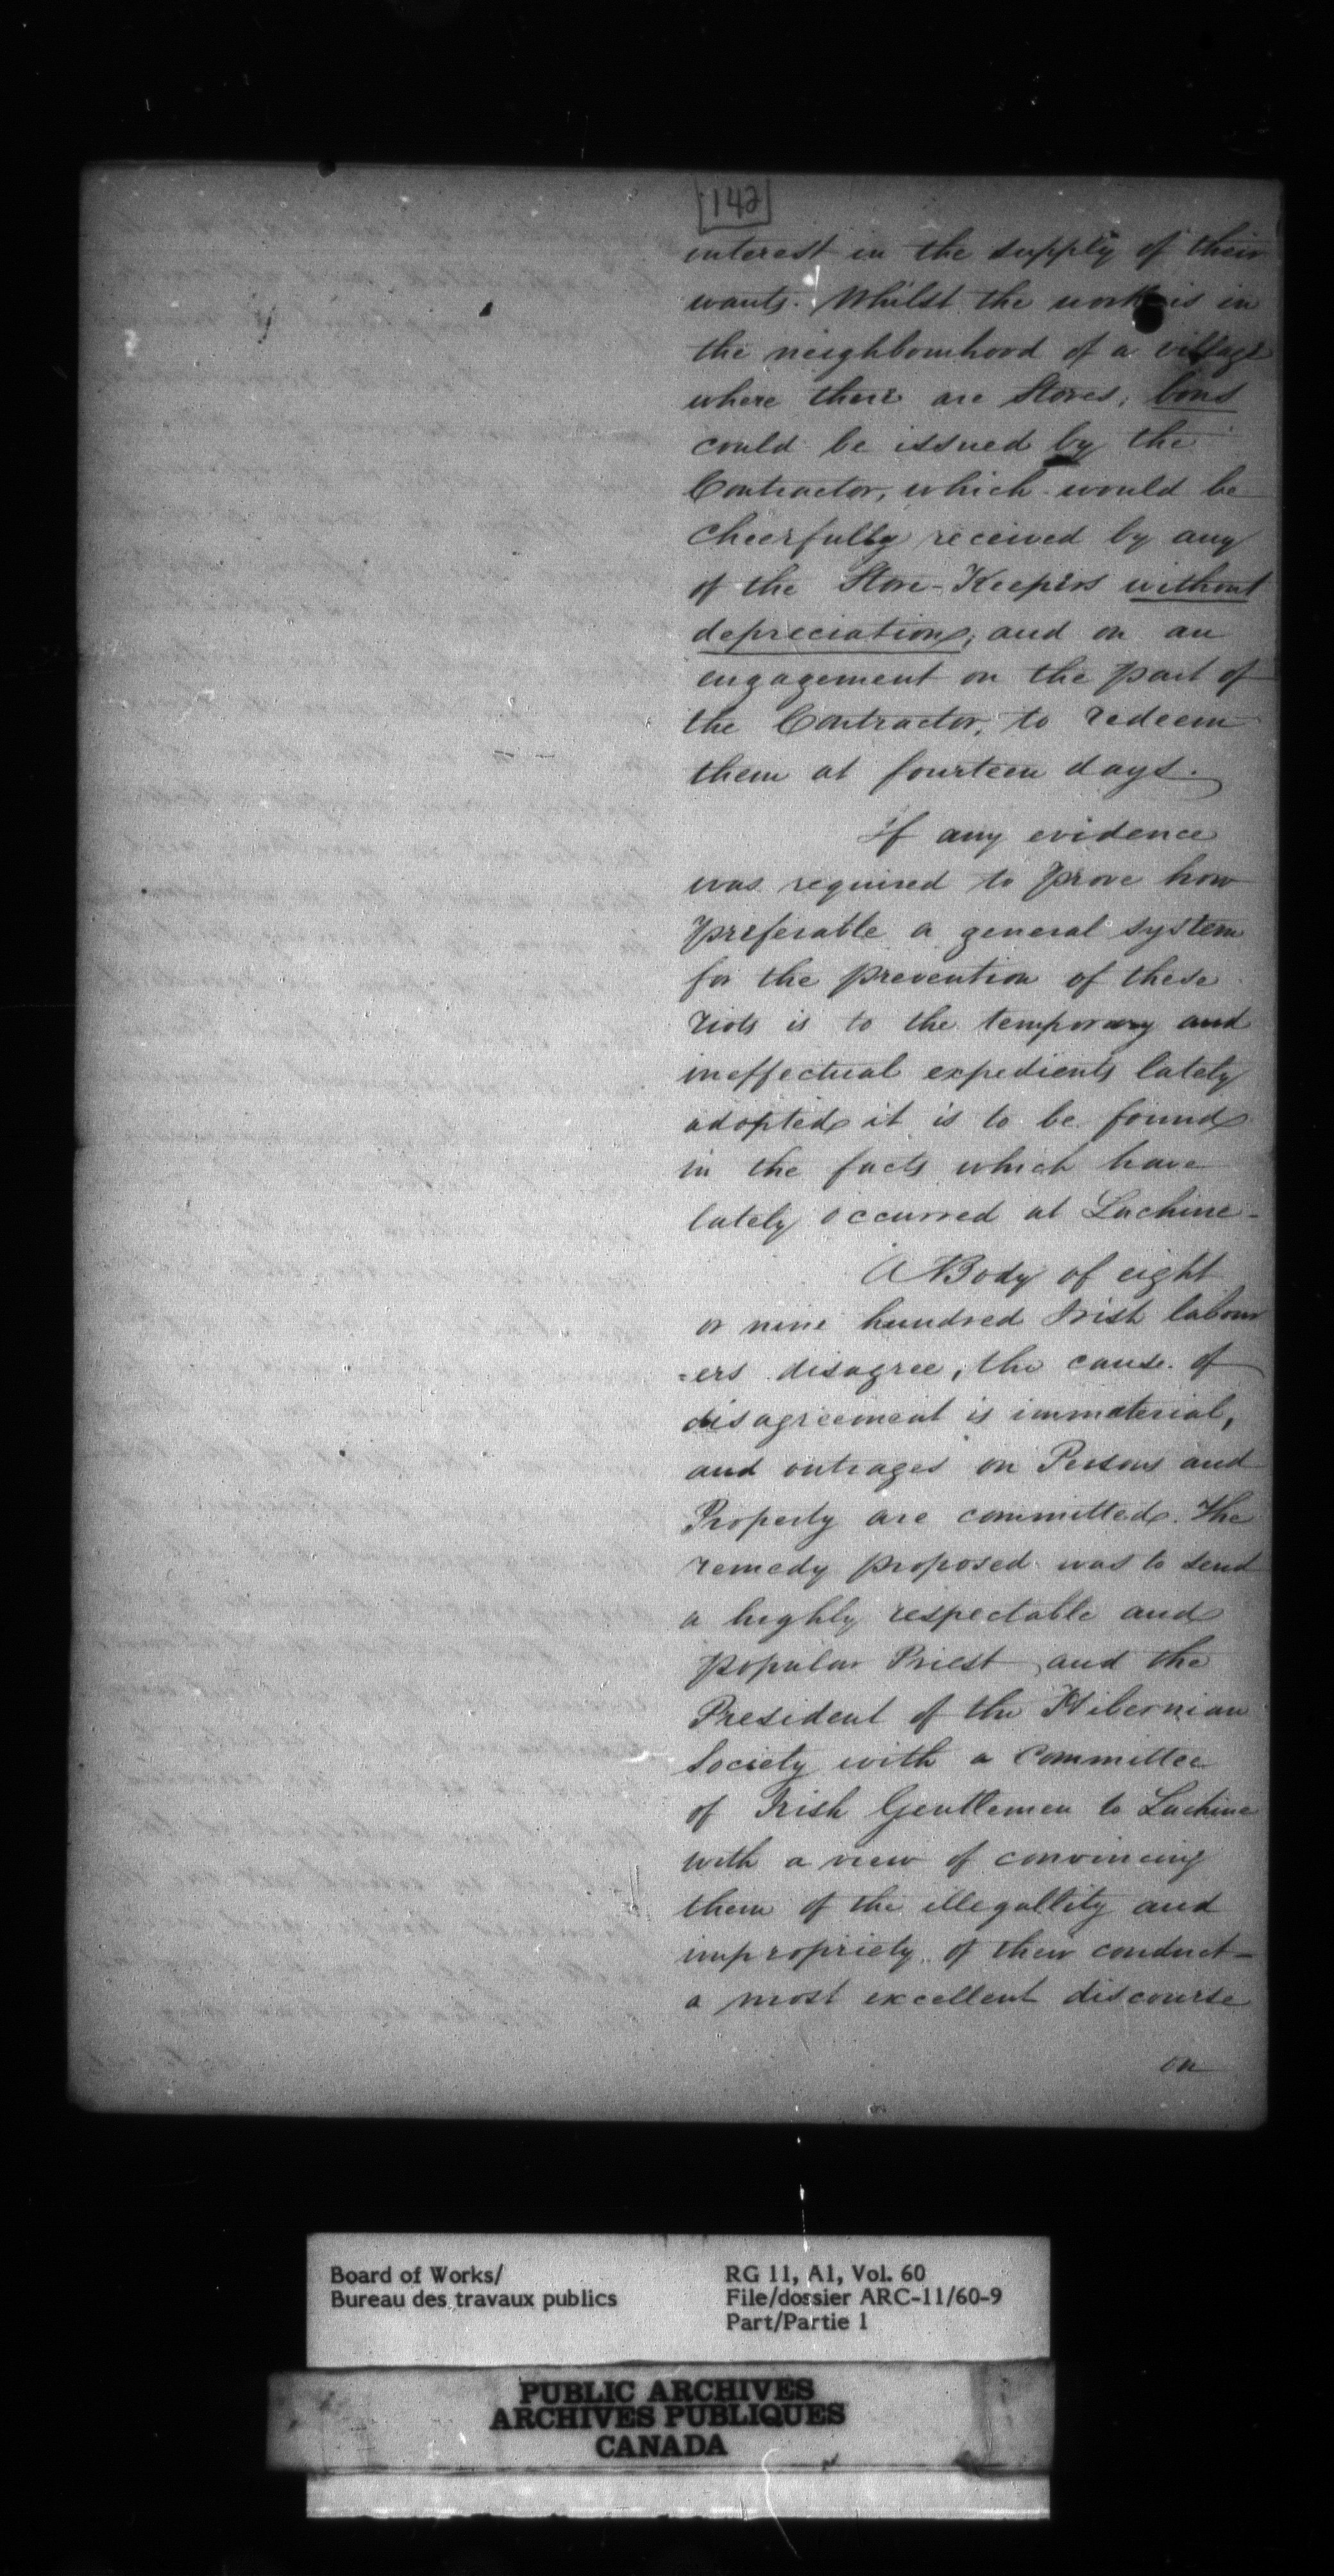 [142]
interest in the supply of their
wants. Whilst the work is in
the neighbourhood of a village
where there are Stores, bons
could be issued by the
Contractor, which would be
cheerfully received by any
of the Store-Keepers without
depreciation, and on an
engagement on the part of
the Contractor, to redeem
them at fourteen days.
If any evidence
was required to prove how
preferable a general system
for the prevention of these
riots is to the temporary and
ineffectual expedients lately
adopted it is to be found
in the facts which have
lately occurred at Lachine-
A Body of eight
or nine hundred Irish labour
=ers disagree, the cause of
disagreement is immaterial,
and outrages on Persons and
Property are committed. The
remedy proposed was to send
a highly respectable and
popular Priest, and the
President of the Hibernian
Society with a Committee
of Irish Gentlemen to Lachine
with a view of convincing
them of the illegallity and
impropriety of their conduct-
a most excellent discourse
on
Board of Works/
Bureau des travaux publics
RG 11, A1, Vol. 60
File/dossier ARC-11/60-9
Part/Partie 1
PUBLIC ARCHIVES
ARCHIVES PUBLIQUES
CANADA